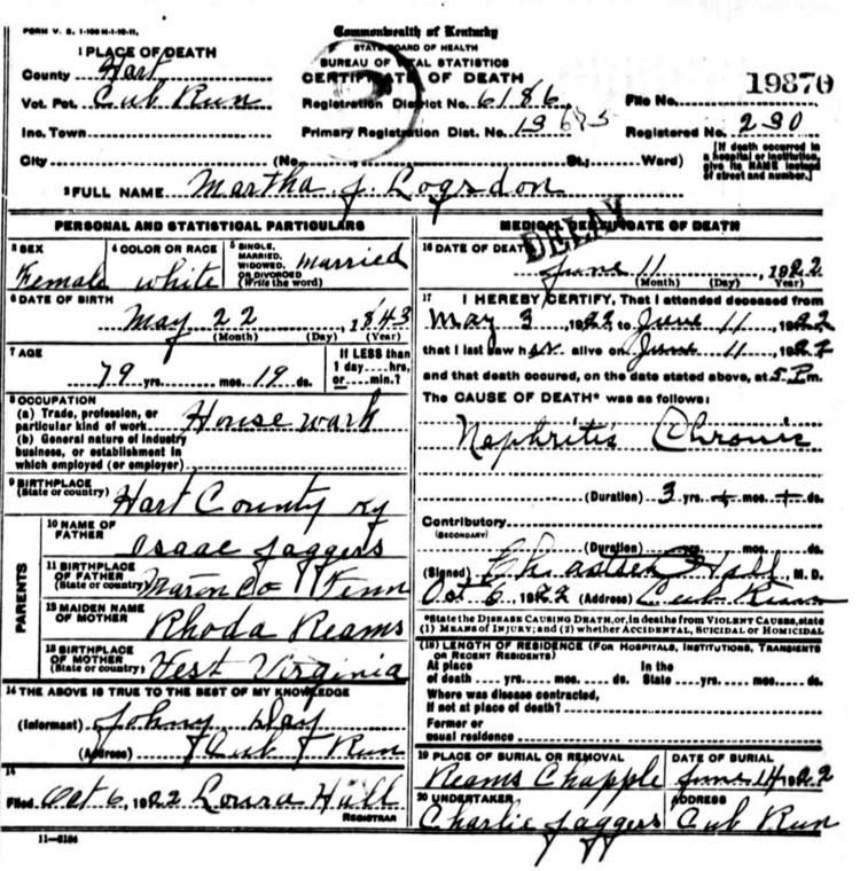 FORM V. S. 1-100 M-1-10-11.
Commonwealth of Kentucky
STATE BOARD OF HEALTH
BUREAU OF VITAL STATISTICS
CERTIFICATE OF DEATH
1 PLACE OF DEATH
County Hart
Vot. Pct. Cub Run
Inc. Town
City (No. St.; Ward)
Registration District No. 6186
Primary Registration Dist. No.
File No. 19870
Registered No. 290
[If death occurred in a hospital or institution, give its NAME instead of street and number.]
2 FULL NAME Martha J. Logsdon
PERSONAL AND STATISTICAL PARTICULARS
3 SEX Female
4 COLOR OR RACE white
5 SINGLE, MARRIED, WIDOWED, OR DIVORCED (Write the word) married
6 DATE OF BIRTH
May 22, 1843
(Month) (Day) (Year)
7 AGE
79 yrs. mos. 19 ds.
If LESS than 1 day....hrs, or....min.?
8 OCCUPATION
(a) Trade, profession, or particular kind of work House work
(b) General nature of industry business, or establishment in which employed (or employer)
9 BIRTHPLACE (State or country) Hart County Ky
PARENTS
10 NAME OF FATHER Isaac Jaggers
11 BIRTHPLACE OF FATHER (State or country) Co Tenn
12 MAIDEN NAME OF MOTHER Rhoda Reams
13 BIRTHPLACE OF MOTHER (State or country) West Virginia
14 THE ABOVE IS TRUE TO THE BEST OF MY KNOWLEDGE
(Informant) Johny Day
(Address) Cub Run
Filed Oct 6, 1922 Loura Hall
REGISTRAR
11-3184
MEDICAL CERTIFICATE OF DEATH
DELAY
16 DATE OF DEATH
June 11, 1922
(Month) (Day) (Year)
17 I HEREBY CERTIFY, That I attended deceased from
May 3, 1922 to June 11, 1922
that I last saw her alive on June 11, 1922
and that death occured, on the date stated above, at 5 P m.
The CAUSE OF DEATH* was as follows:
Nephritis Chronic
(Duration) 3 yrs. mos. ds.
Contributory
(SECONDARY)
(Duration) yrs. mos. ds.
(Signed) Hall, M. D.
Oct 6, 1922 (Address) Cub Run
*State the DISEASE CAUSING DEATH, or, in deaths from VIOLENT CAUSES, state
(1) MEANS OF INJURY; and (2) whether ACCIDENTAL, SUICIDAL or HOMICIDAL
(18) LENGTH OF RESIDENCE (FOR HOSPITALS, INSTITUTIONS, TRANSIENTS OR RECENT RESIDENTS)
At place of death yrs. mos. ds. In the State yrs. mos. ds.
Where was disease contracted, if not at place of death?
Former or usual residence
19 PLACE OF BURIAL OR REMOVAL Reams Chapple
DATE OF BURIAL June 14 1922
20 UNDERTAKER Charlie Jaggers
ADDRESS Cub Run